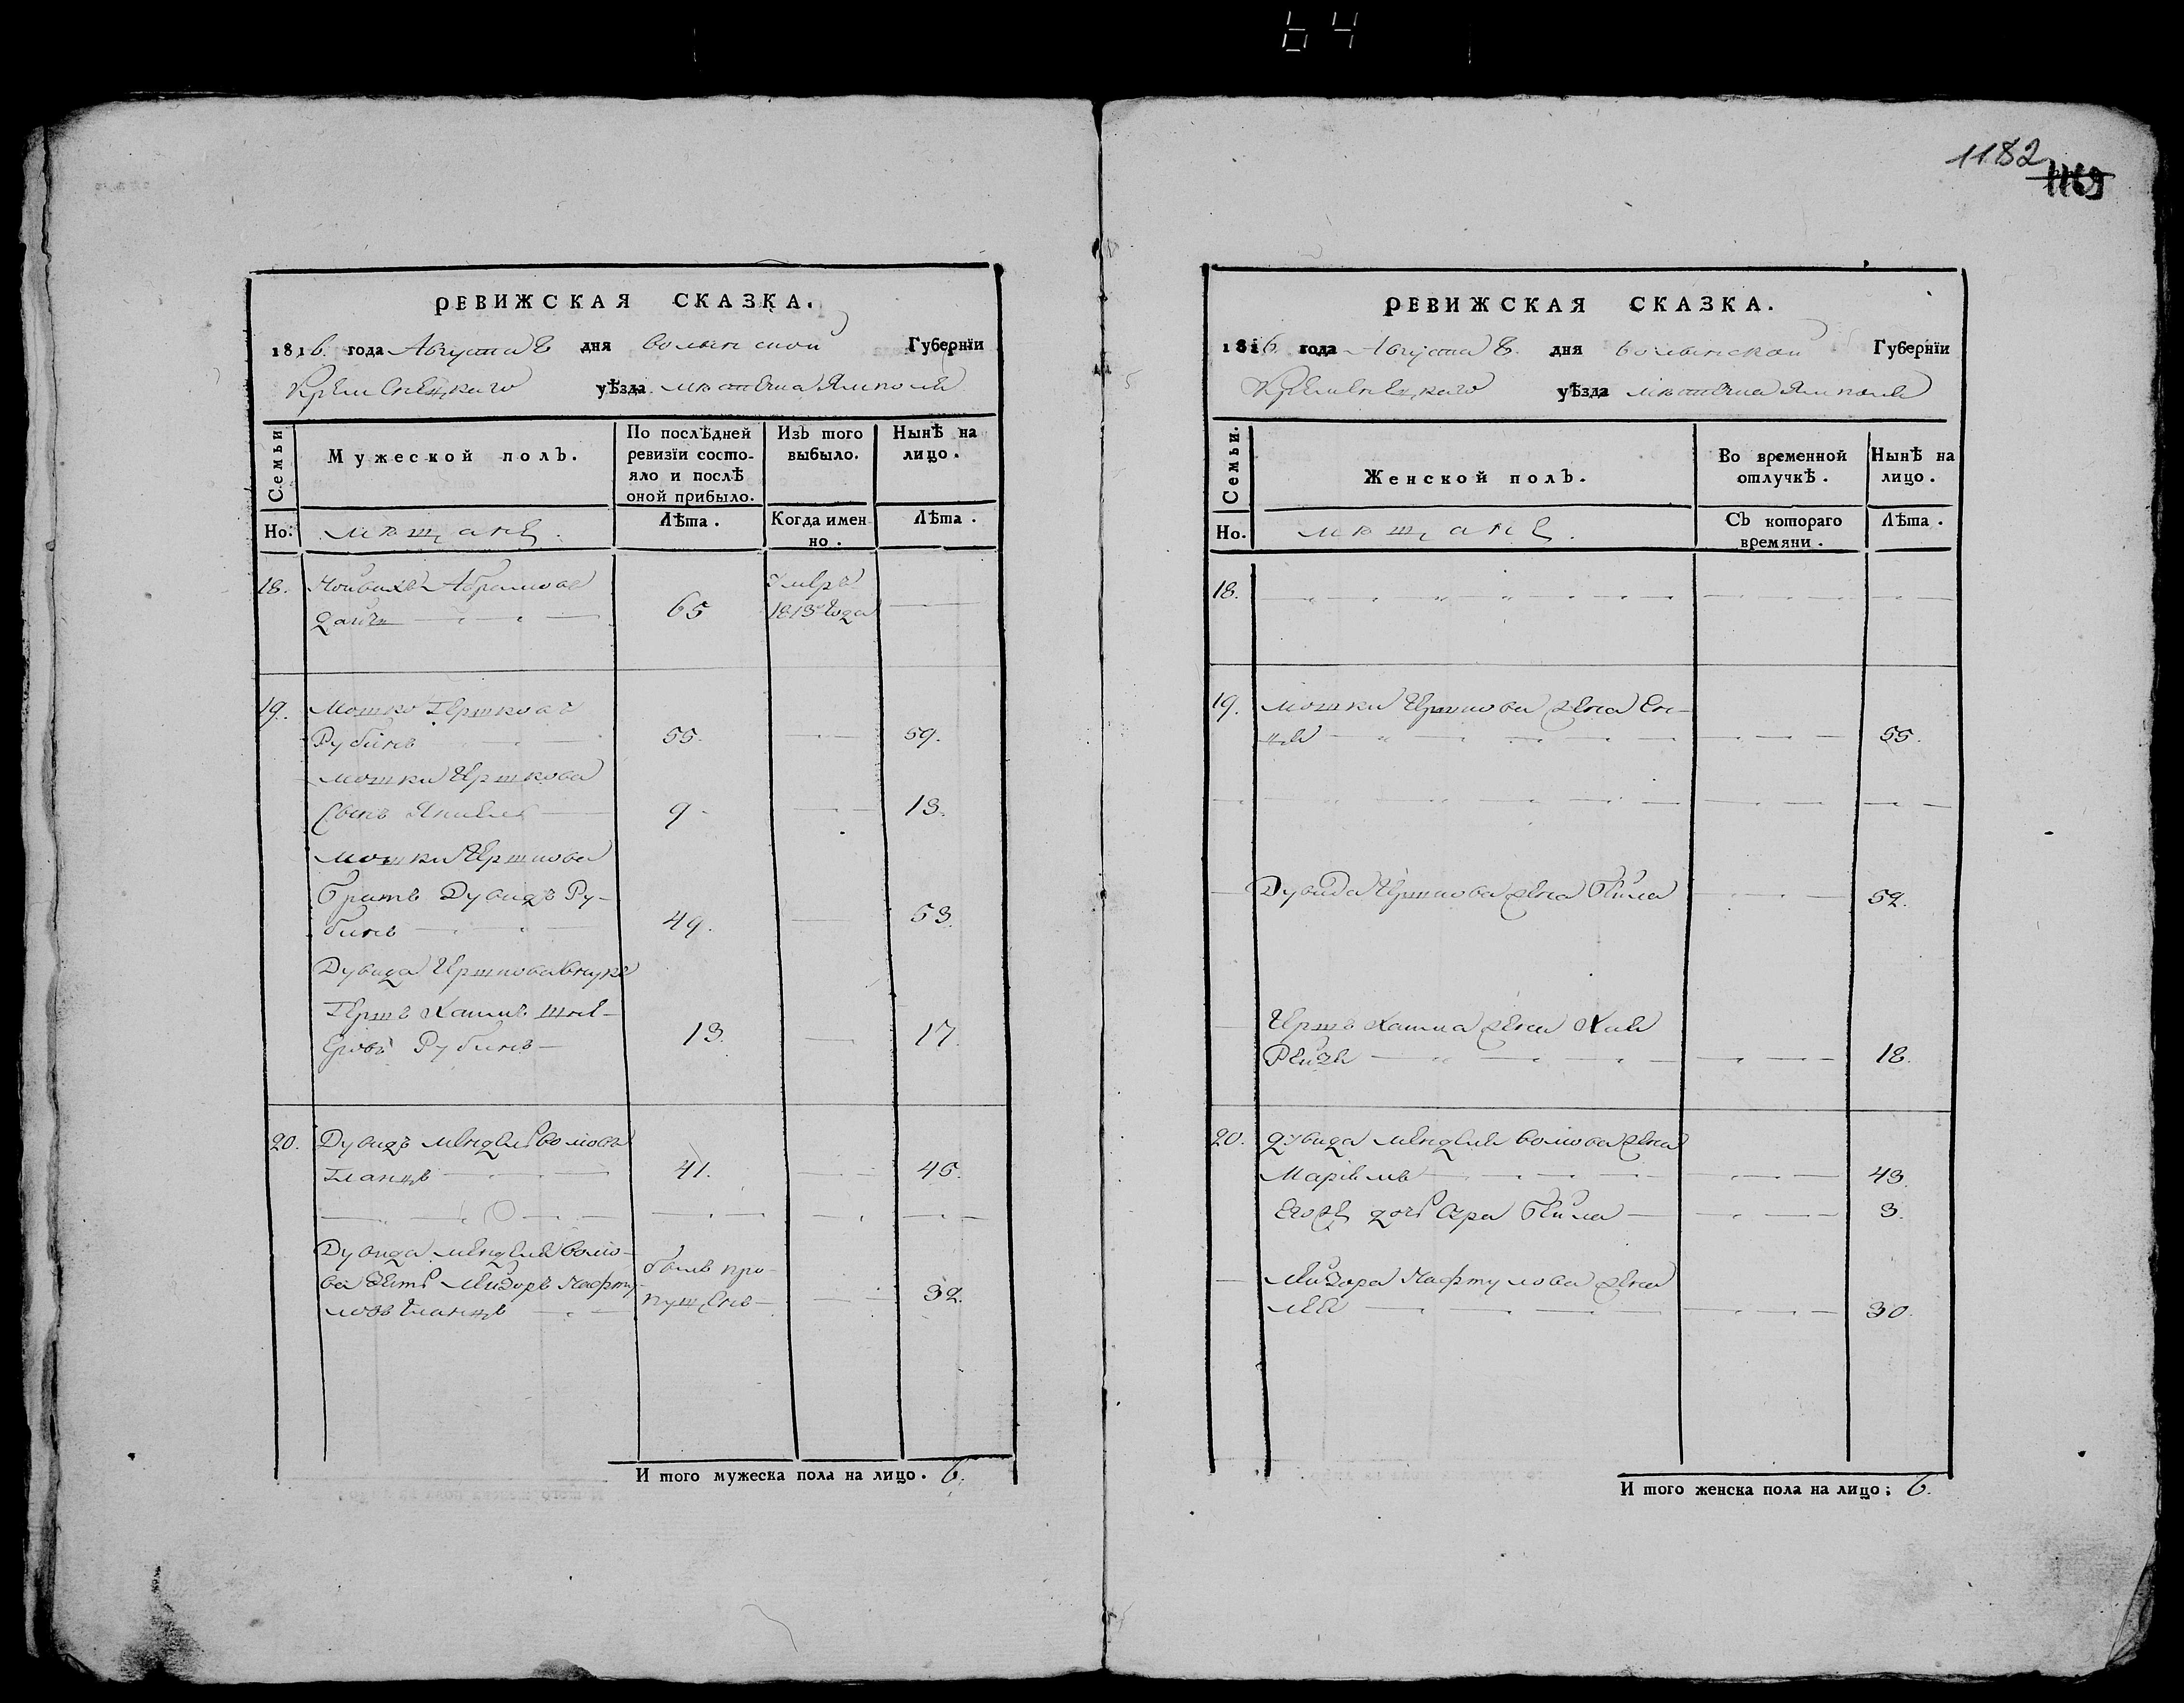 64
1182
1169
РЕВИЖСКАЯ СКАЗКА.
1816. года Августа 8 дня Волынской Губернїи
Кременецкаго уѣзда мѣстечка Ямполя
Семьи
Мужеской полъ.
По послѣдней ревизїи состо-
яло и послѣ
оной прибыло.
Изъ того
выбыло.
Нынѣ на
лицо.
Но:
мѣщане.
Лѣта.
Когда имен
но.
Лѣта.
18. Абрамовъ Умеръ
65 1813 года
19. Мошко Гершковъ
Рубинъ 55. 59.
Мошки Гершкова
Сынъ Янкель 9. 13.
Мошки Гершкова
братъ Дувидъ Ру-
бинъ 49. 53.
Дувида Гершкова внукъ
Гершъ Хаимъ
Рубинъ 13. 17.
20. Дувидъ Мендель Волковъ
Гланцъ 41. 45.
Дувида Менделя Волко-
ва зять Мейзоръ Нафту-
ловъ Гланцъ
былъ про-
пущенъ 32.
И того мужеска пола на лицо. 6.
РЕВИЖСКАЯ СКАЗКА.
1816 года Августа 8. дня Волынской Губернїи
Кременецкаго уѣзда мѣстечка Ямполя
Семьи.
Женской полъ.
Во временной
отлучкѣ.
Нынѣ на
лицо.
Но.
мѣщане.
Съ котораго
времяни.
Лѣта.
18.
19. Мошки Гершкова жена
55.
Дувида Гершкова жена Бейла 52.
Гершъ Хаима жена Хая
Рейзя 18.
20. Дувида Менделя Волкова жена
Маріемъ 43.
Егожъ дочь Сура Бейла 3.
Мейзора Нафтулова жена
Лея 30.
И того женска пола на лицо; 6.